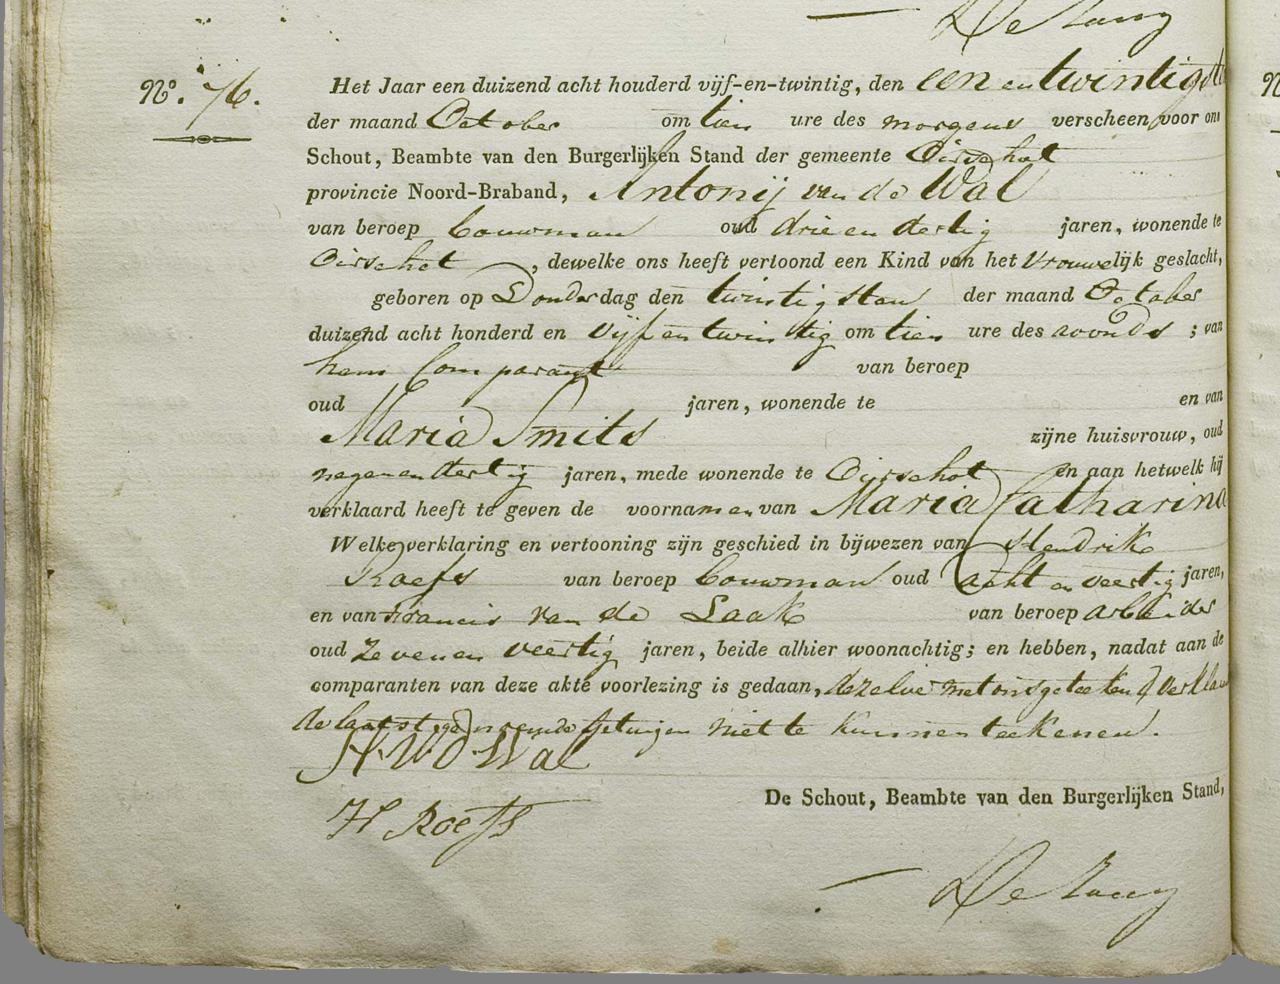 De
No. 76.
Het Jaar een duizend acht houderd vijf-en-twintig, den een en twintigste
der maand October om tien ure des morgens verscheen voor ons
Schout, Beambte van den Burgerlijken Stand der gemeente Oirschot
provincie Noord-Braband, Antonij van de Wal
van beroep bouwman oud drie en dertig jaren, wonende te
Oirschot, dewelke ons heeft vertoond een Kind van het vrouwelijk geslacht,
geboren op Donderdag den twintigsten der maand October
duizend acht honderd en vijf en twintig om tien ure des avonds ; van
hem Comparant van beroep
oud jaren, wonende te en van
Maria Smits zijne huisvrouw, oud
negenendertig jaren, mede wonende te Oirschot en aan hetwelk hij
verklaard heeft te geven de voornamen van Maria Catharina
Welke verklaring en vertooning zijn geschied in bijwezen van Hendrik
Roefs van beroep bouwman oud acht en veertig jaren,
en van Francis van de Laak van beroep arbeider
oud zeven en veertig jaren, beide alhier woonachtig; en hebben, nadat aan de
comparanten van deze akte voorlezing is gedaan, dezelve met ons geteekend verklaa
de laatstgenoemde getuigen niet te kunnen teekenen.
A V D Wal
H Roefs
De Schout, Beambte van den Burgerlijken Stand,
De